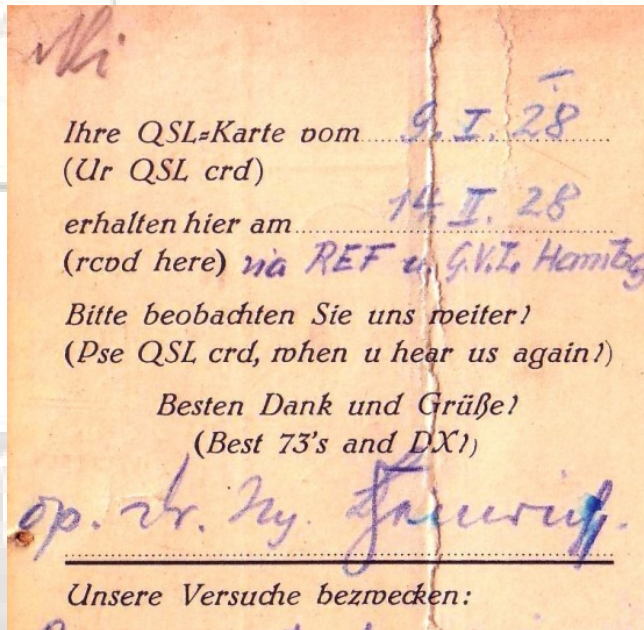 Ihre QSL=Karte vom 9. I. 28
(Ur QSL crd)
erhalten hier am 14. II. 28
(rcvd here) via REF u. G.V.I.
Bitte beobachten Sie uns weiter!
(Pse QSL crd, when u hear us again!)
Besten Dank und Grüße!
(Best 73's and DX!)
op. Dr.
Unsere Versuche bezwecken: